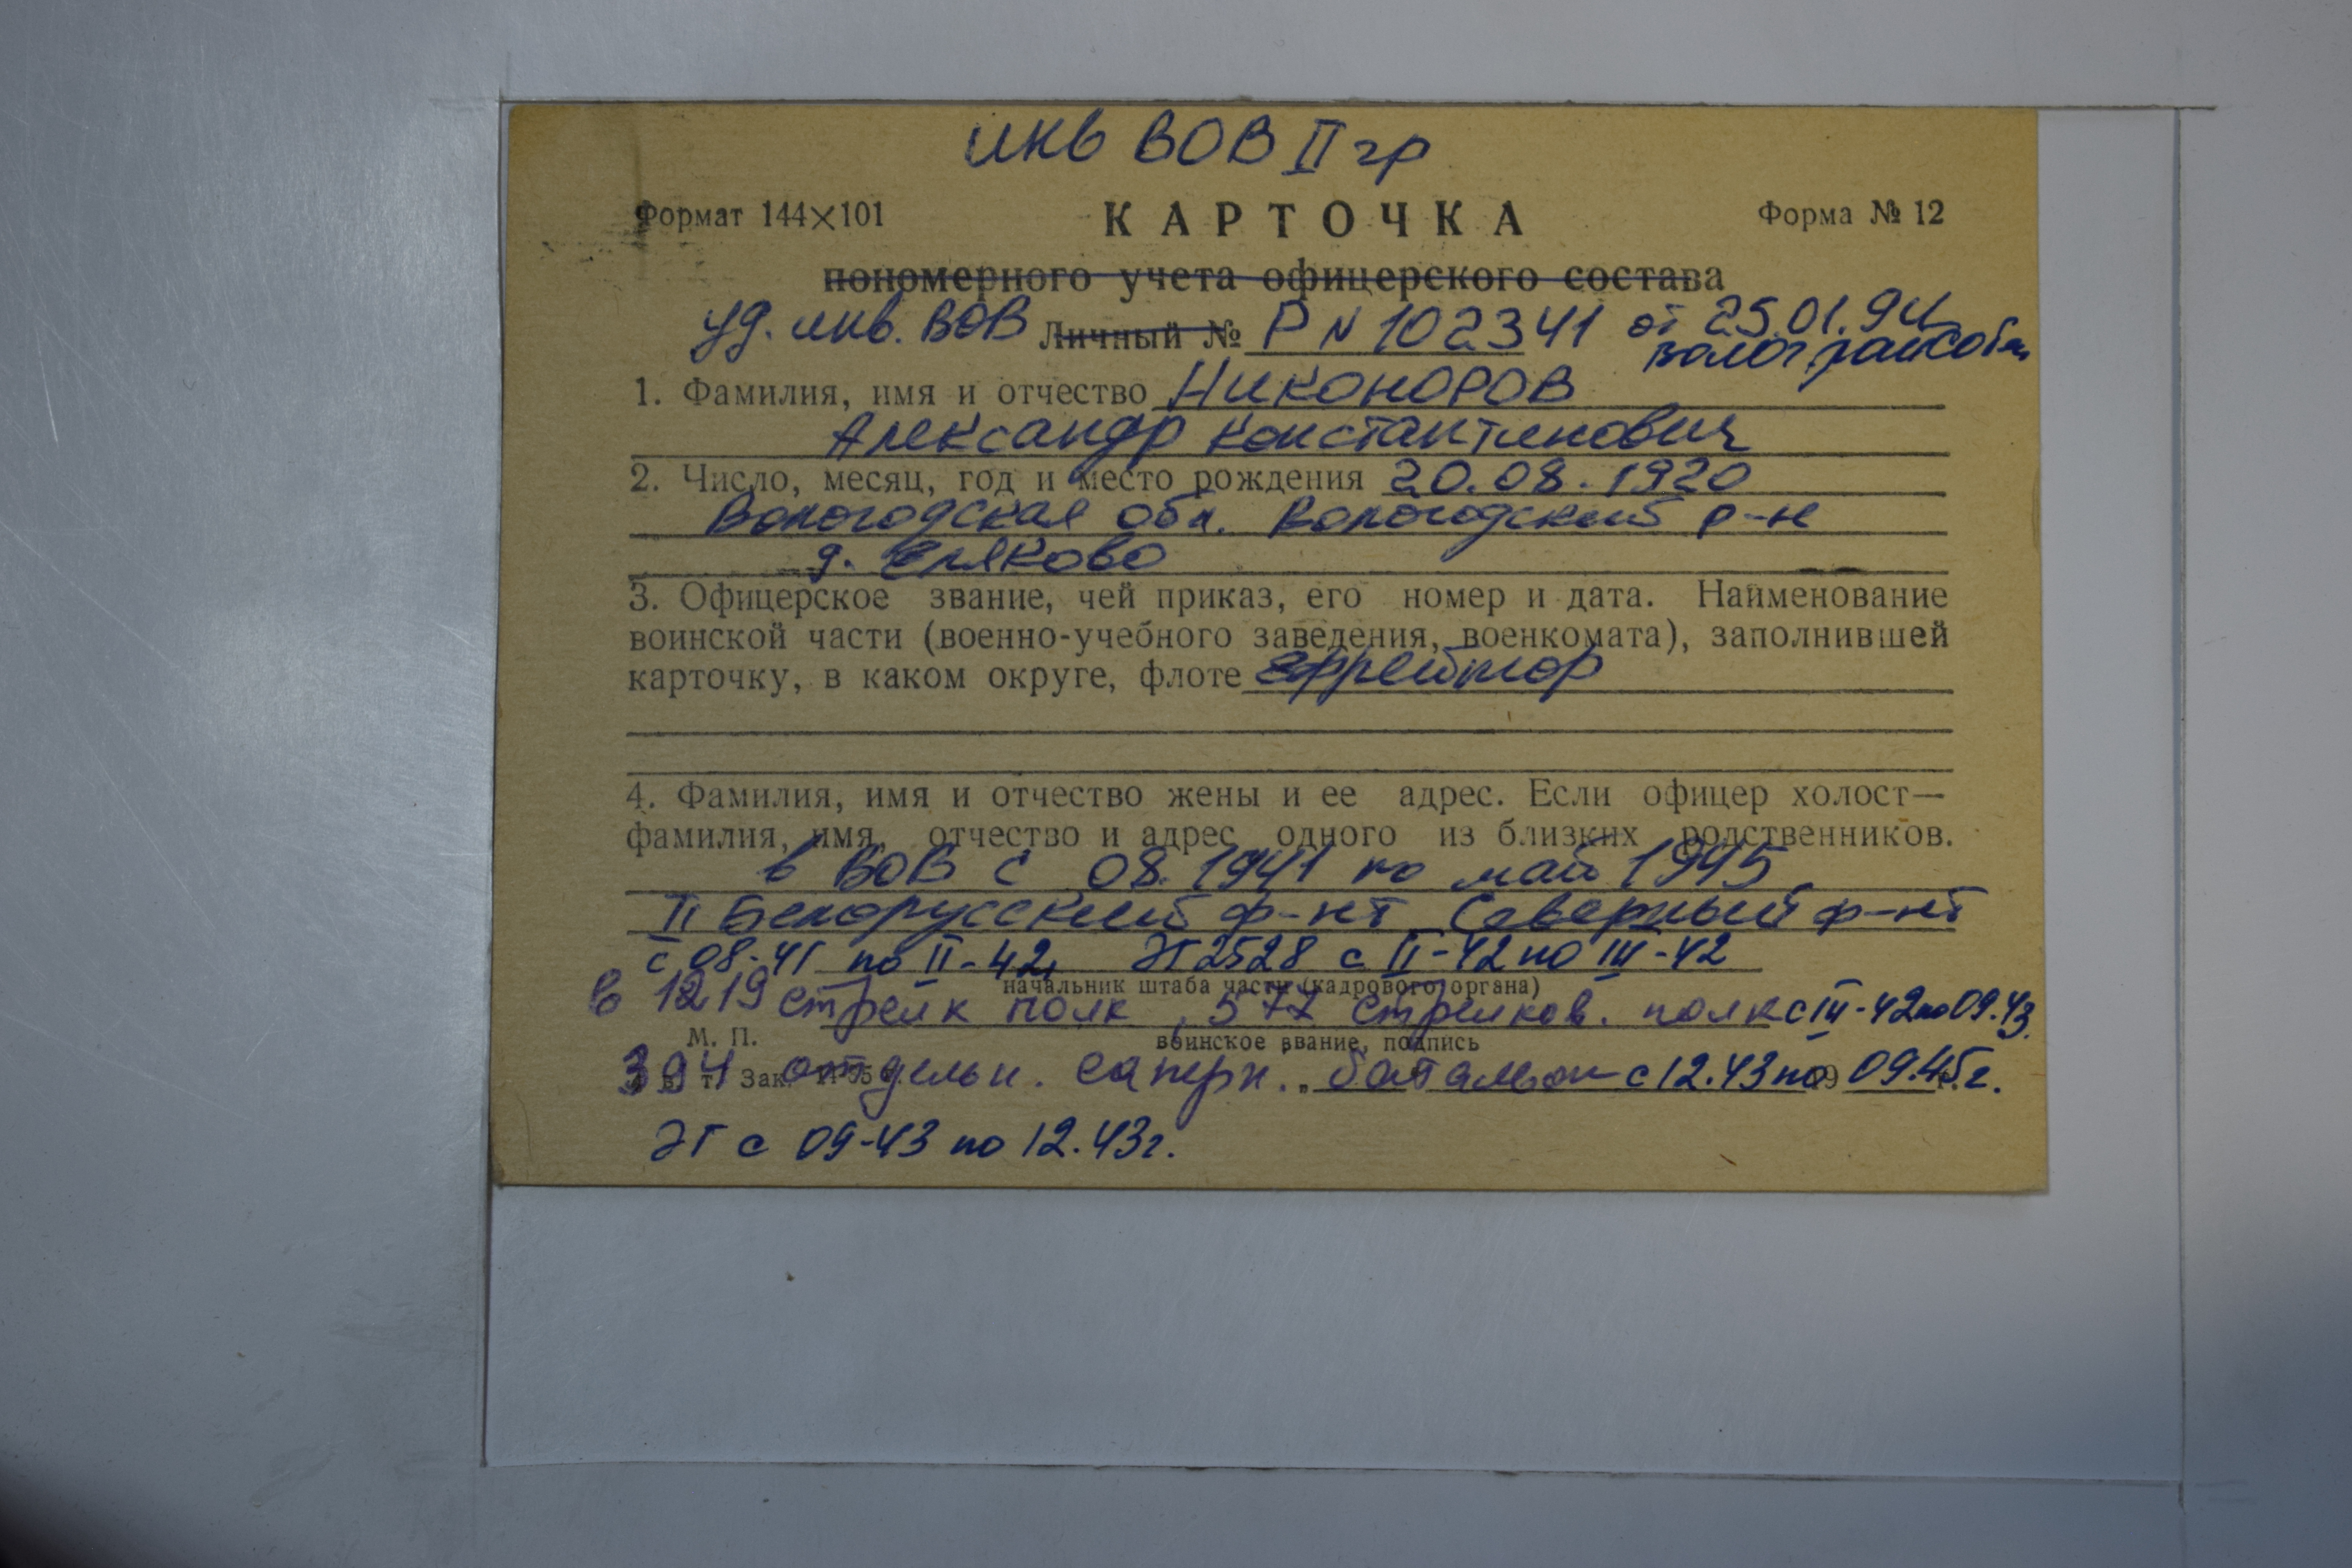 инв ВОВ II гр
Формат 144×101 КАРТОЧКА Форма № 12
пономерного учета офицерского состава
уд. инв. ВОВ Личный № Р N 102341 от 25.01.94
1. Фамилия, имя и отчество Никоноров
Александр Константинович
2. Число, месяц, год и место рождения 20.08.1920
Вологодская обл. Вологодский р-н
д.
3. Офицерское звание, чей приказ, его номер и дата. Наименование
воинской части (военно-учебного заведения, военкомата), заполнившей
карточку, в каком округе, флоте ефрейтор
4. Фамилия, имя и отчество жены и ее адрес. Если офицер холост—
фамилия, имя, отчество и адрес одного из близких родственников.
в ВОВ с 08.1941 по май 1945
II Белорусский ф-нт Северный ф-нт
с 08-41 по II-42, ЭГ 2528 с II-42 по III-42
начальник штаба части (кадрового органа)
в 1219 стрелк полк, 577 стрелков. полк с III-42 по 09.43.
М. П. воинское звание, подпись
394 отдельн. саперн. батальон с 12.43 по 09.45 г.
Зак. 19 г.
ЭГ с 09-43 по 12.43 г.